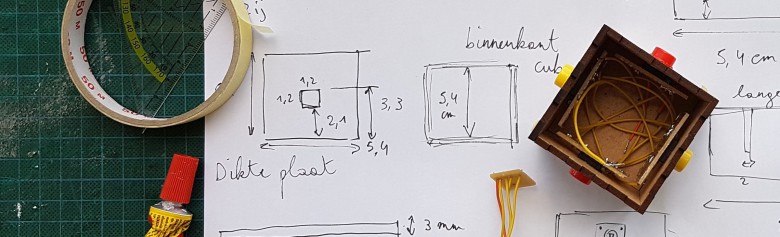 binnenkant
cub
1,2
1,2
2,1
3,3
5,4
5,4
cm
5,4 cm
lange
2
Dikte plaat
3 mm
50 M
50 M